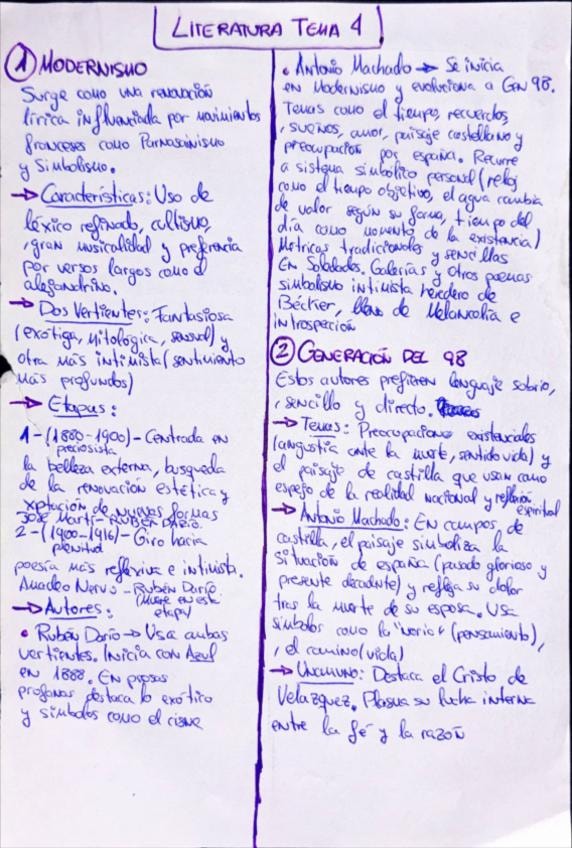 LITERATURA TEMA 4
① MODERNISMO
Surge como una renovación
lírica influenciada por movimientos
franceses como Parnasainismo
y Simbolismo.
→ Características: Uso de
léxico refinado, cultismo,
, gran musicalidad y preferencia
por versos largos como el
alejandrino.
→ Dos Vertientes: Fantasiosa
(exótiga, mitológica, sensual) y
otra más intimista (sentimiento
más profundos)
→ Etapas:
1-(1880-1900)- Centrada en
preciosista
la belleza externa, busqueda
de la renovación estética y
xptación de nuevas formas
José Martí - RUBÉN DARÍO.
2-(1900-1916)- Giro hacia
plenitud
poesía más reflexiva e intimista.
Amadeo Nervo - Rubén Darío
(Muere en esta
etapa)
→ Autores:
• Rubén Darío → Usa ambas
vertientes. Inicia con Azul
en 1888. En prosas
profanas destaca lo exótico
y símbolos como el cisne
• Antonio Machado → Se inicia
en Modernismo y evoluciona a Gen 98.
Temas como el tiempo, recuerdos
, sueños, amor, paisaje castellano y
preocupación por españa. Recurre
a sistema simbólico personal (reloj
como el tiempo objetivo, el agua cambia
de valor según su forma, tiempo del
día como momento de la existencia)
Métricas tradicionales y sencillas
En Soledades. Galerías y otros poemas
simbolismo intimista heredero de
Bécker, lleno de Melancolía e
introspección
② GENERACIÓN DEL 98
Estos autores prefieren lenguaje sobrio,
, sencillo y directo.
→ Temas: Preocupaciones existenciales
(angustia ante la muerte, sentido vida) y
el paisaje de castilla que usan como
espejo de la realidad nacional y reflexión
espiritual
→ Antonio Machado: En campos de
castilla, el paisaje simboliza la
situación de españa (pasado glorioso y
presente decadente) y refleja su dolor
tras la muerte de su esposa. Usa
símbolos como la "noria" (pensamiento),
, el camino (vida)
→ Unamuno: Destaca el Cristo de
Velazquez. Plasma su lucha interna
entre la fé y la razón